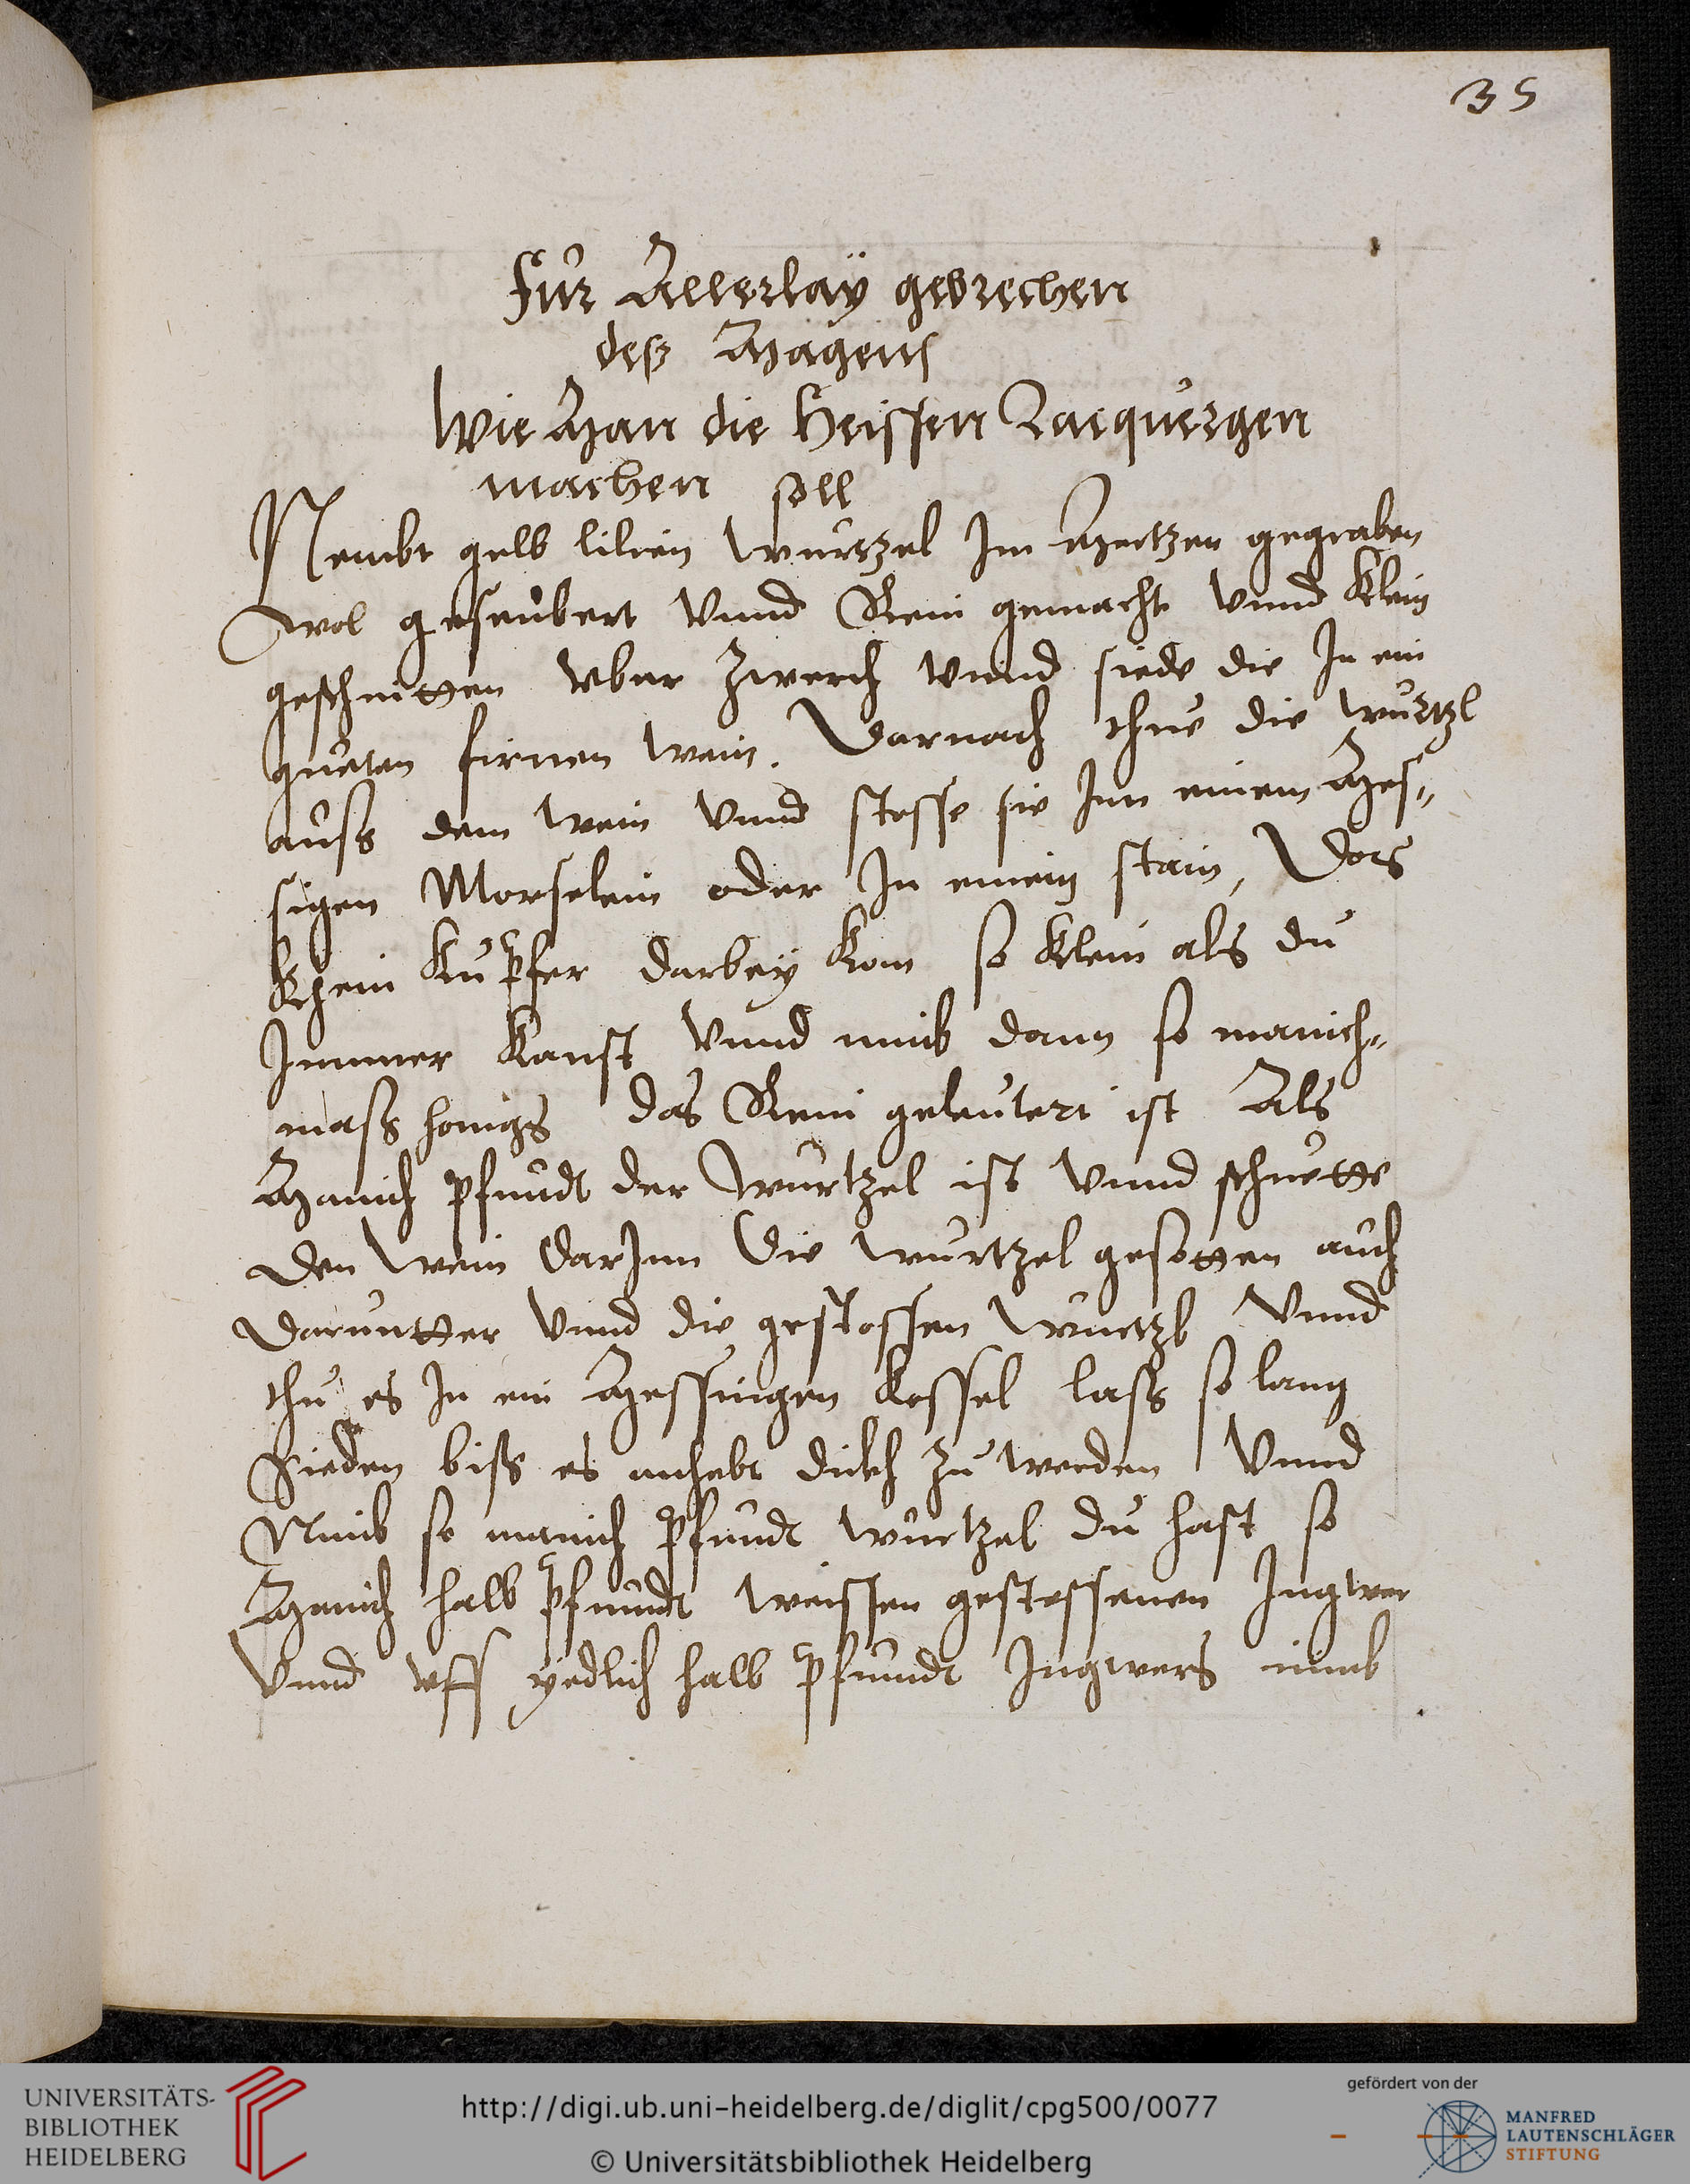 35
Für Allerlaÿ gebrechen
deß Magens
Wie Man die Heissen Lacquergen
machen soll
Nembt gelb lilien wurtzel Im Mertzen gegraben
wol geseubert vnnd Rein gemacht vnnd klein
geschnitten vber zwerch vnnd siede die In ein
gueten firnen wein. Darnach thue die wurtzl
auß dem wein vnnd stosse sie Inn einem Mes„
sigen Morselein oder In einem stain, Das
khein Kupfer darbey kom so klein als du
Immer kanst vnnd nimb dann so manich„
maß honigs das Rein geleutert ist Als
Manich pfundt der wurtzel ist vnnd schuette
den wein darInn die wurtzel gesotten auch
daruntter vnnd die gestossen wurtzl vnnd
thu es In ein Messingen kessel laß so lang
Sieden biß es anhebt dickh zu werden vnnd
Nimb so manich pfundt wurtzel du hast so
Manich halb pfundt weissen gestossenen Ingwer
vnnd vff yedlich halb pfundt Ingwers nimb
UNIVERSITÄTS-
BIBLIOTHEK
HEIDELBERG
http://digi.ub.uni-heidelberg.de/diglit/cpg500/0077
© Universitätsbibliothek Heidelberg
gefördert von der
MANFRED
LAUTENSCHLÄGER
STIFTUNG